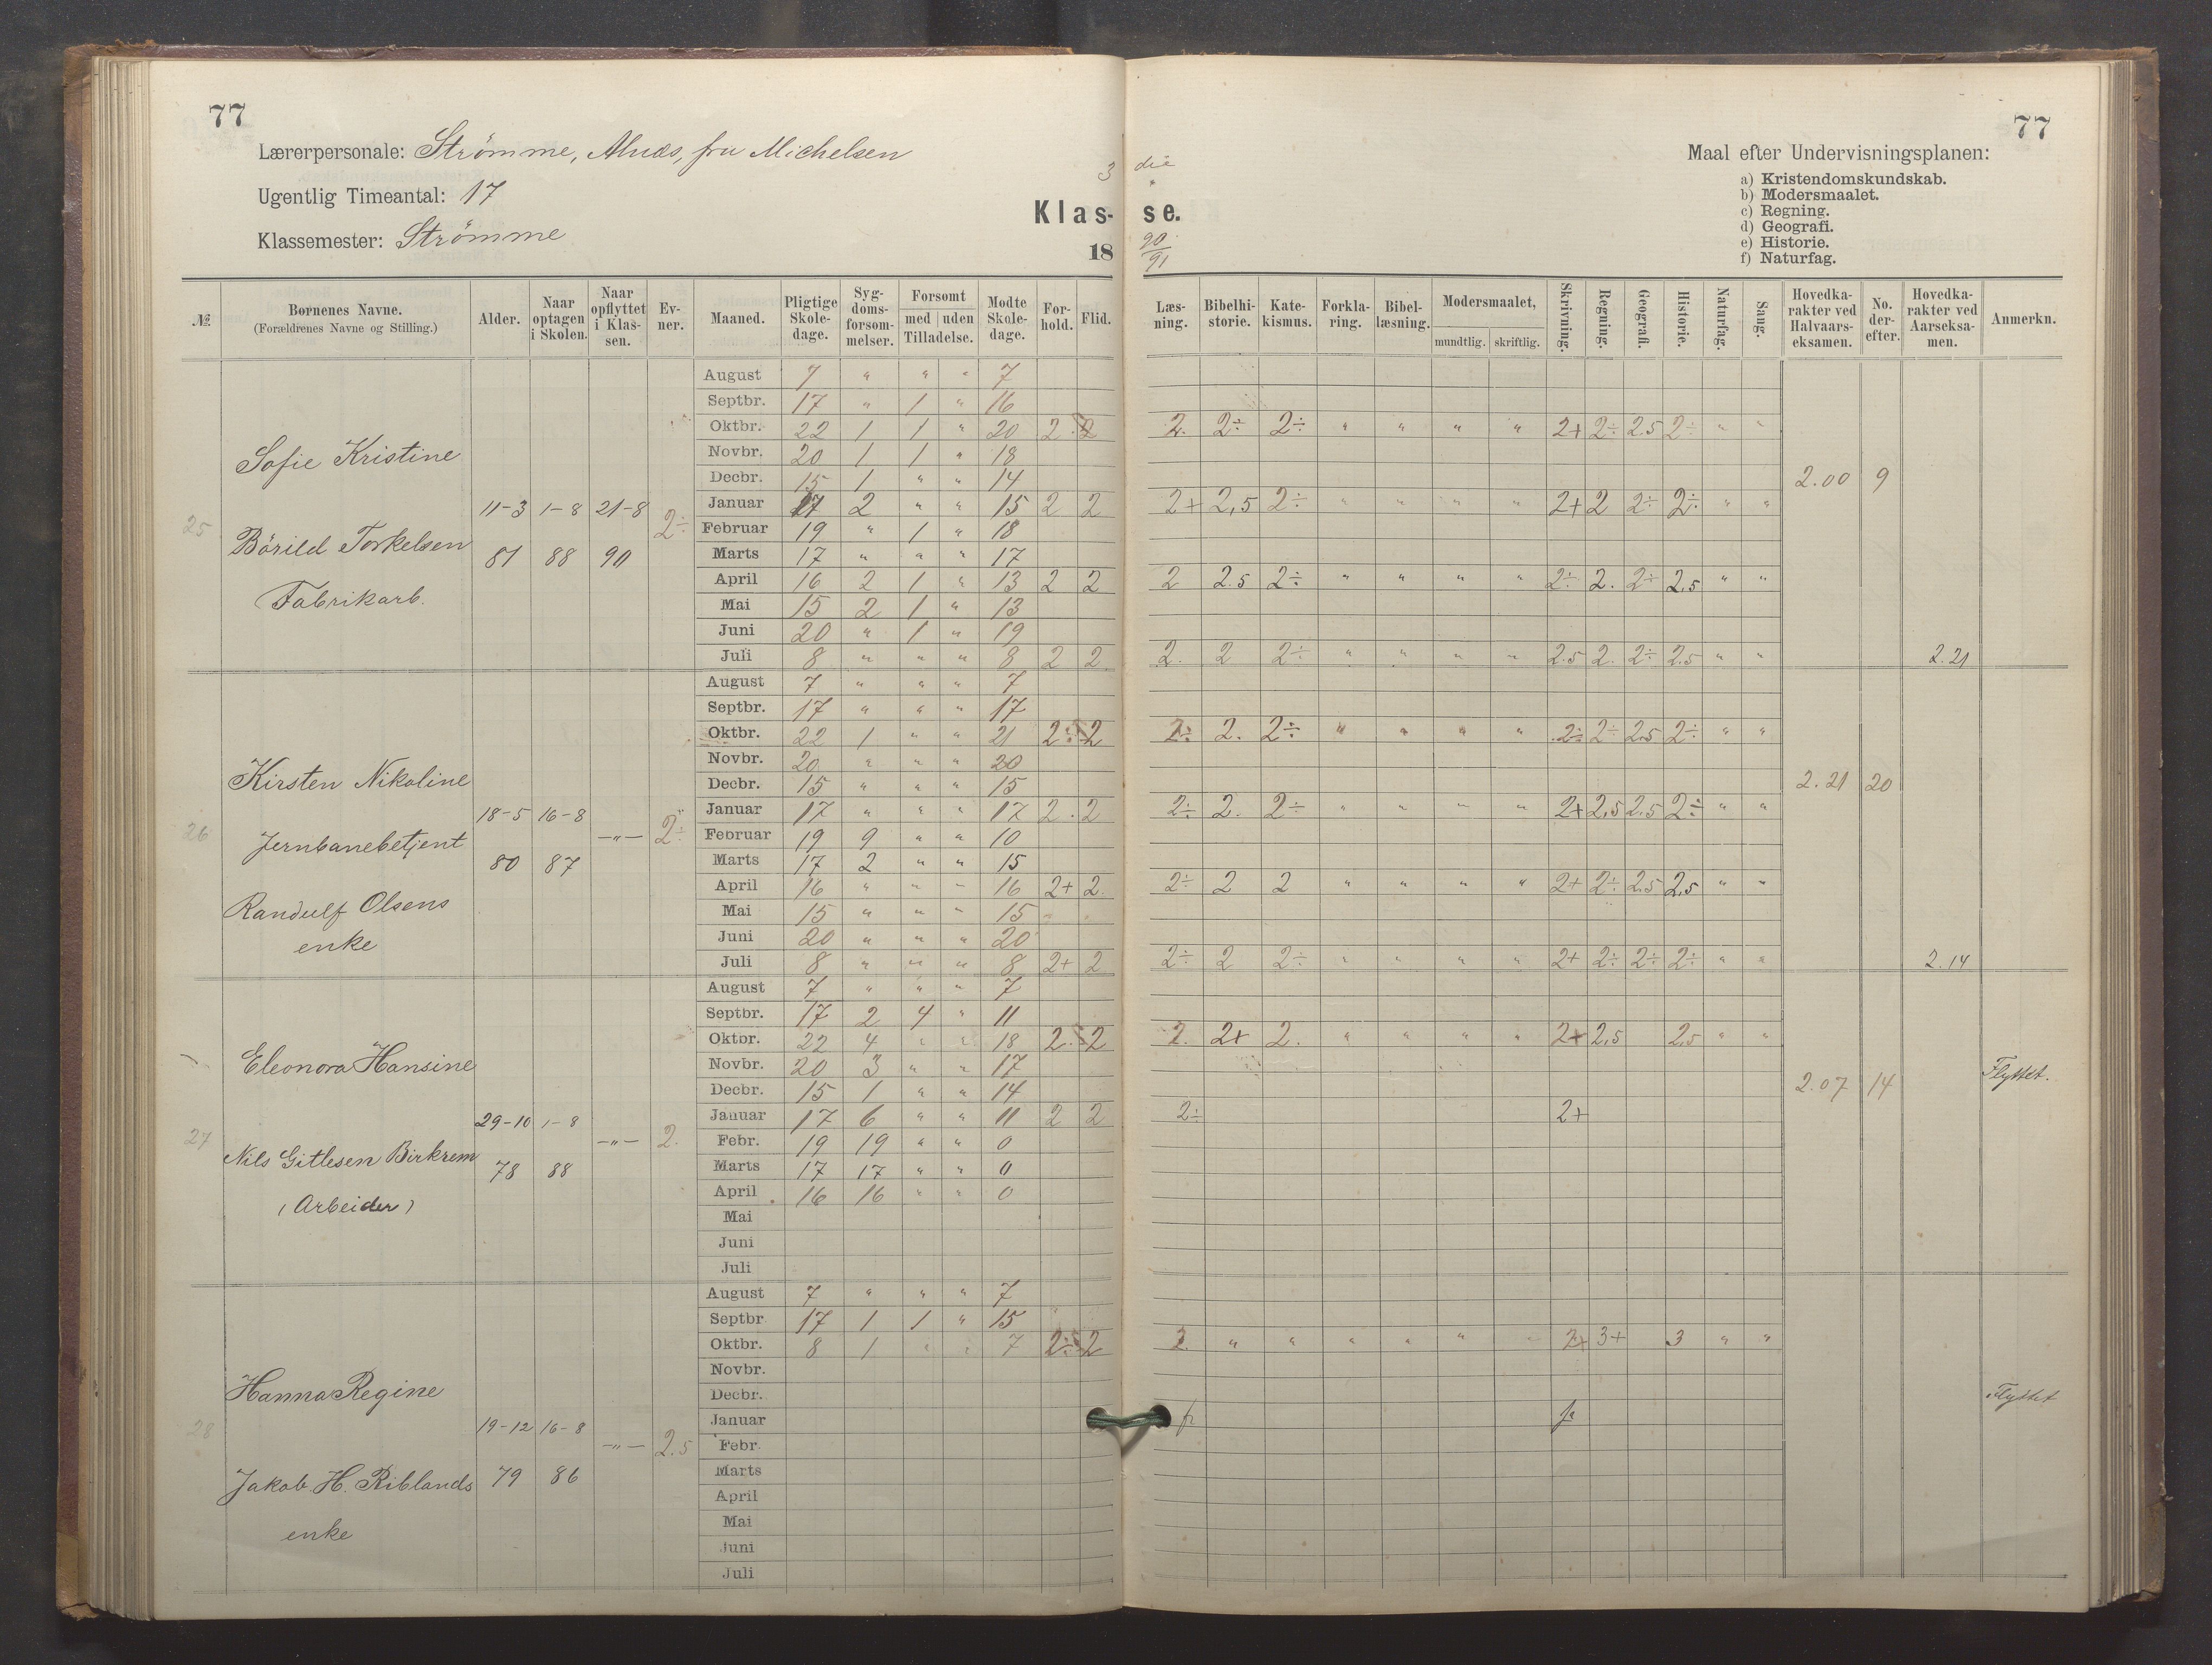 77
77
Lærerpersonale: Strömme, Aluas, fru Michelsen
Ugentlig Timeantal: 17
Klassemester: Strömme
3 die
Klas- se.
18 90/91
Maal efter Undervisningsplanen:
a) Kristendomskundskab.
b) Modersmaalet.
c) Regning.
d) Geografi.
e) Historie.
f) Naturfag.
№ | Børnenes Navne. (Forældrenes Navne og Stilling.) | Alder. | Naar optagen i Skolen. | Naar opflyttet i Klassen. | Evner. | Maaned. | Pligtige Skoledage. | Sygdomsforsømmelser. | Forsømt med uden Tilladelse. | Mødte Skoledage. | Forhold. | Flid. | Læsning. | Bibelhistorie. | Katekismus. | Forklaring. | Bibellæsning. | Modersmaalet, mundtlig. skriftlig. | Skrivning. | Regning. | Geografi. | Historie. | Naturfag. | Sang. | Hovedkarakter ved Halvaarseksamen. | No. derefter. | Hovedkarakter ved Aarseksamen. | Anmerkn.
25 Sofie Kristine
Börild Torkelsen
Fabrikarb.
11-3 81 | 1-8 88 | 21-8 90 | 2÷
August 7 " " " 7
Septbr. 17 " 1 " 16
Oktbr. 22 1 1 " 20 2. 2 | 2. 2÷ 2÷ " " " " 2+ 2÷ 2.5 2÷ " "
Novbr. 20 1 1 " 18
Decbr. 15 1 " " 14
2.00 9
Januar 17 2 " " 15 2 2 | 2+ 2,5 2÷ " " " " 2+ 2 2÷ 2÷ " "
Februar 19 " 1 " 18
Marts 17 " " " 17
April 16 2 1 " 13 2 2 | 2 2.5 2÷ " " " " 2÷ 2. 2÷ 2,5 " "
Mai 15 2 1 " 13
Juni 20 " 1 " 19
Juli 8 " " " 8 2 2 | 2. 2 2÷ " " " " 2.5 2. 2÷ 2.5 " " 2.21
26 Kirsten Nikoline
Jernbanebetjent
Randulf Olsens
enke
18-5 80 | 16-8 87 | -"- | 2÷
August 7 " " " 7
Septbr. 17 " " " 17
Oktbr. 22 1 " " 21 2÷ 2 | 2÷ 2. 2÷ " " " " 2÷ 2÷ 2.5 2÷ " "
Novbr. 20 " " " 20
Decbr. 15 " " " 15
2.21 20
Januar 17 " " " 17 2. 2 | 2÷ 2. 2÷ " " " " 2+ 2,5 2.5 2÷ " "
Februar 19 9 " " 10
Marts 17 2 " " 15
April 16 " " " 16 2+ 2. | 2÷ 2 2 " " " " 2+ 2÷ 2.5 2,5 " "
Mai 15 " " " 15
Juni 20 " " " 20
Juli 8 " " " 8 2+ 2 | 2÷ 2 2÷ " " " " 2+ 2÷ 2÷ 2÷ " " 2.14
27 Eleonora Hansine
Nils Gitlesen Birkrem
(Arbeider)
29-10 78 | 1-8 88 | -"- | 2.
August 7 " " " 7
Septbr. 17 2 4 " 11
Oktbr. 22 4 " " 18 2. 2 | 2. 2+ 2. " " " " 2+ 2,5 2,5 " "
Novbr. 20 3 " " 17
Decbr. 15 1 " " 14
2.07 14 Flyttet.
Januar 17 6 " " 11 2 2 | 2÷ 2+
Febr. 19 19 " " 0
Marts 17 17 " " 0
April 16 16 " " 0
Mai
Juni
Juli
28 Hanna Regine
Jakob H. Riblands
enke
19-12 79 | 16-8 86 | -"- | 2.5
August 7 " " " 7
Septbr 17 1 1 " 15
Oktbr. 8 1 " " 7 2÷ 2 | 2. " " " " " " 2+ 3+ 3 " "
Novbr.
Decbr.
Flyttet
Januar
Febr.
Marts
April
Mai
Juni
Juli